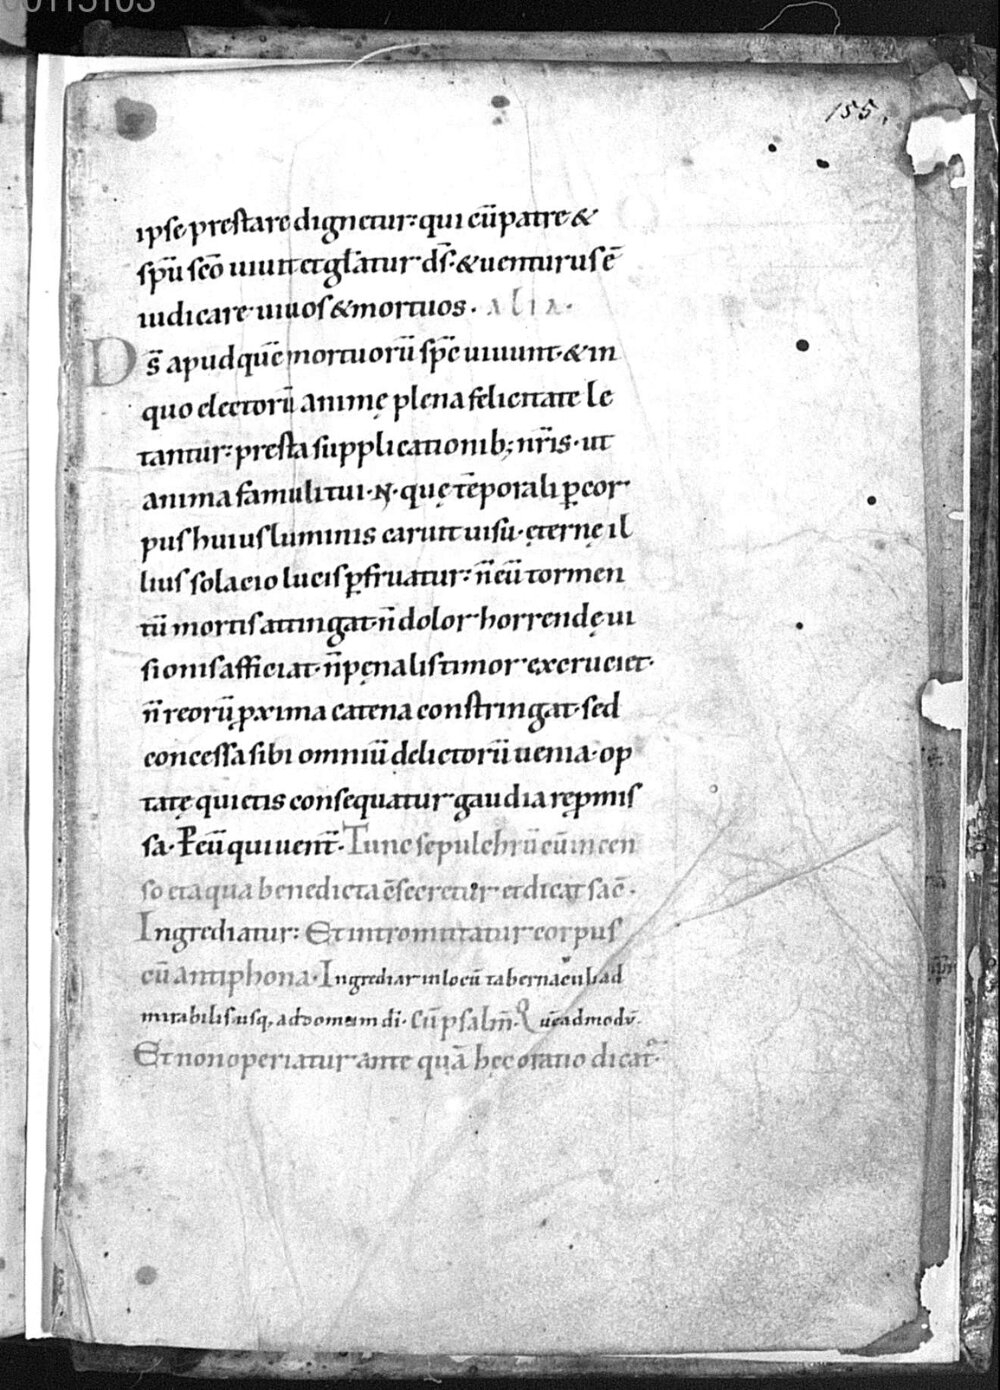 155.
ipse prestare dignetur: qui cū patre &
spū scō uiuit et gl̄atur ds̄. & uenturus ē
iudicare uiuos & mortuos. alia.
Ds̄ apud quē mortuorū spc̄ uiuunt. & in
quo electorū animę plena felicitate le
tantur: presta supplicationib; nr̄is. ut
anima famuli tui .N. quę tēporali ꝑ cor
pus huius luminis caruit uisu. ęternę il
lius solacio lucis ꝑfruatur: n̄ eū tormen
tū mortis attingat. n̄ dolor horrendę ui
sionis afficiat. n̄ pęnalis timor excruciet.
n̄ reorū ꝓxima catena constringat. sed
concessa sibi omniū delictorū uenia. op
tatę quietis consequatur gaudia reꝓmis
sa. P eū qui uent̄. Tunc sepulchrū cū incen
so et aqua benedicta ēsecretur et dicat sac̄.
Ingrediatur: Et intromittatur corpus
cū antiphona. Ingrediar in locū tabernaculi ad
mirabilis usq, ad domum di. Cū psalm̄. Quēadmodū.
Et non operiatur ante quā hęc oratio dicat᷑.